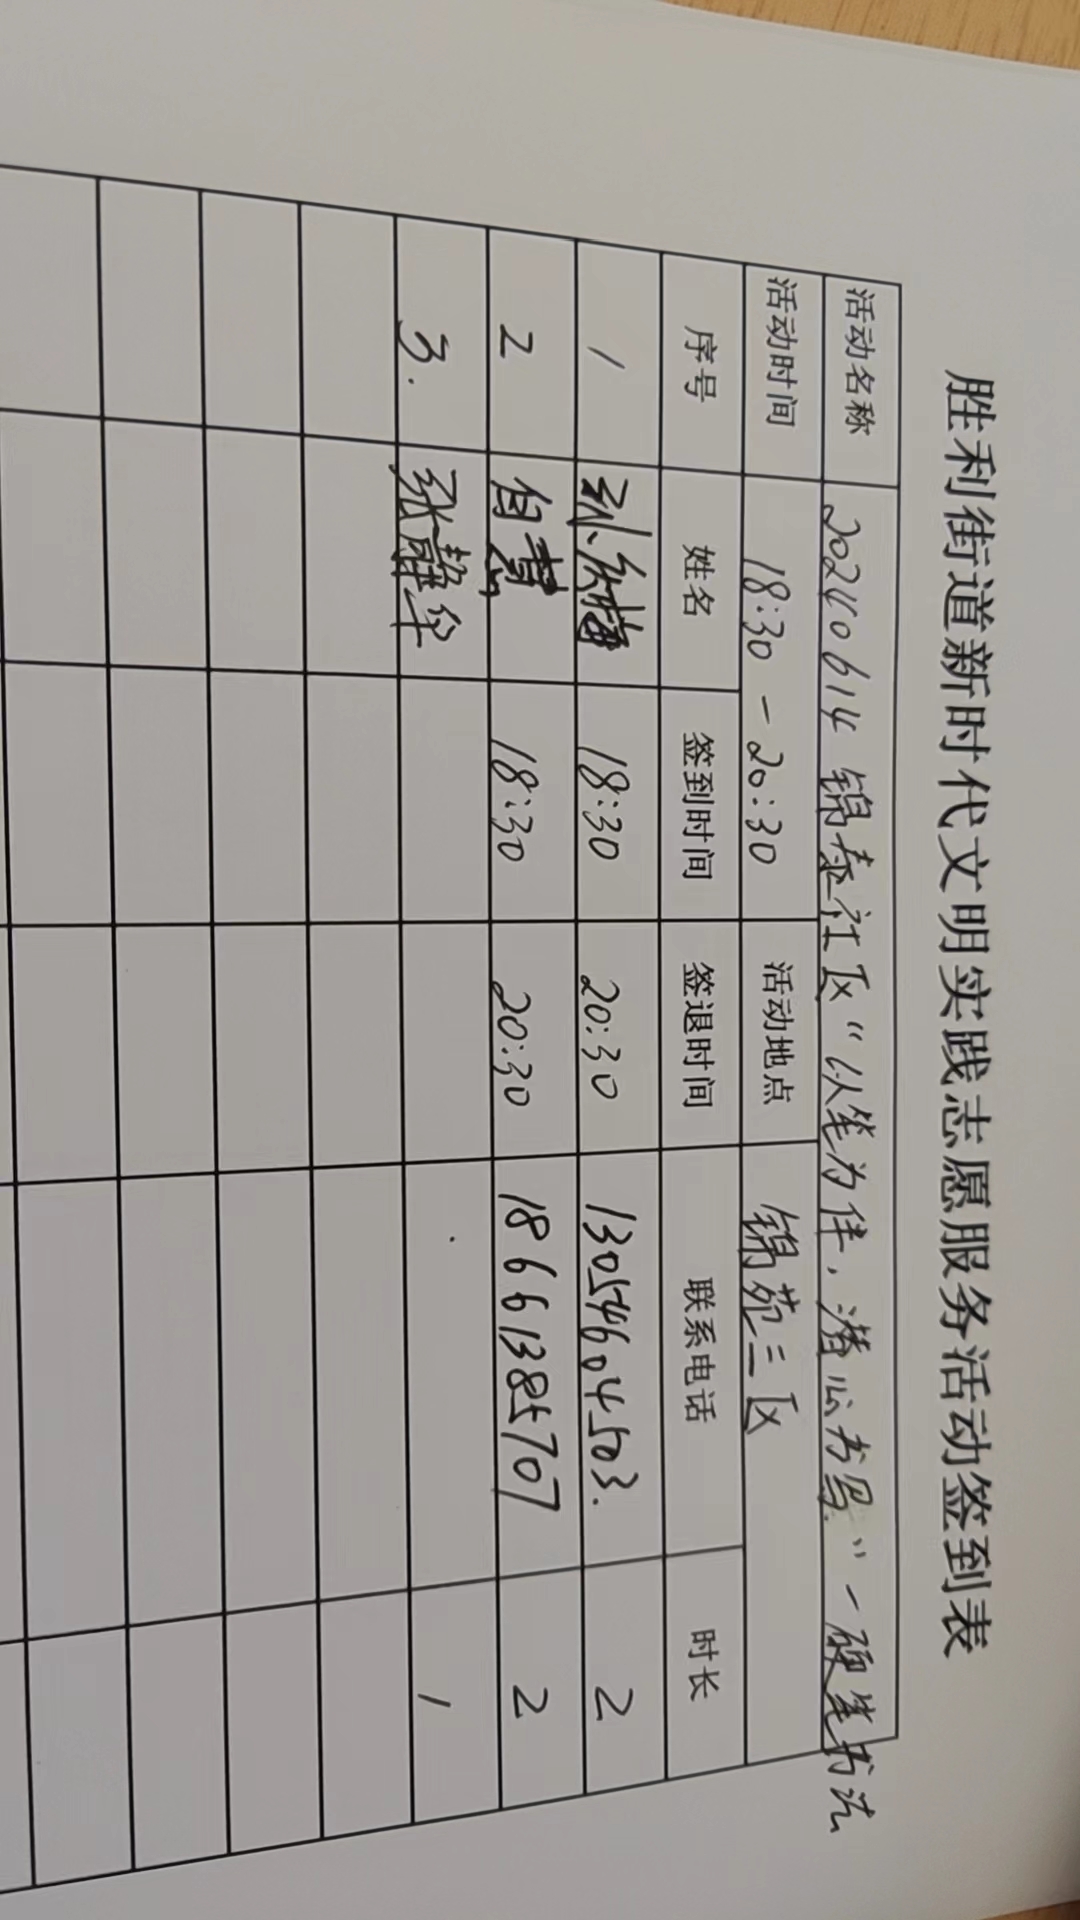 胜利街道新时代文明实践志愿服务活动签到表
活动名称 20240614 锦泰社区“以笔为伴，潜心书写”-硬笔书法
活动时间 18:30-20:30 活动地点 锦苑三区
序号 姓名 签到时间 签退时间 联系电话 时长
1 孙红梅 18:30 20:30 13054604503. 2
2 18:30 20:30 18661385707 2
3. 1